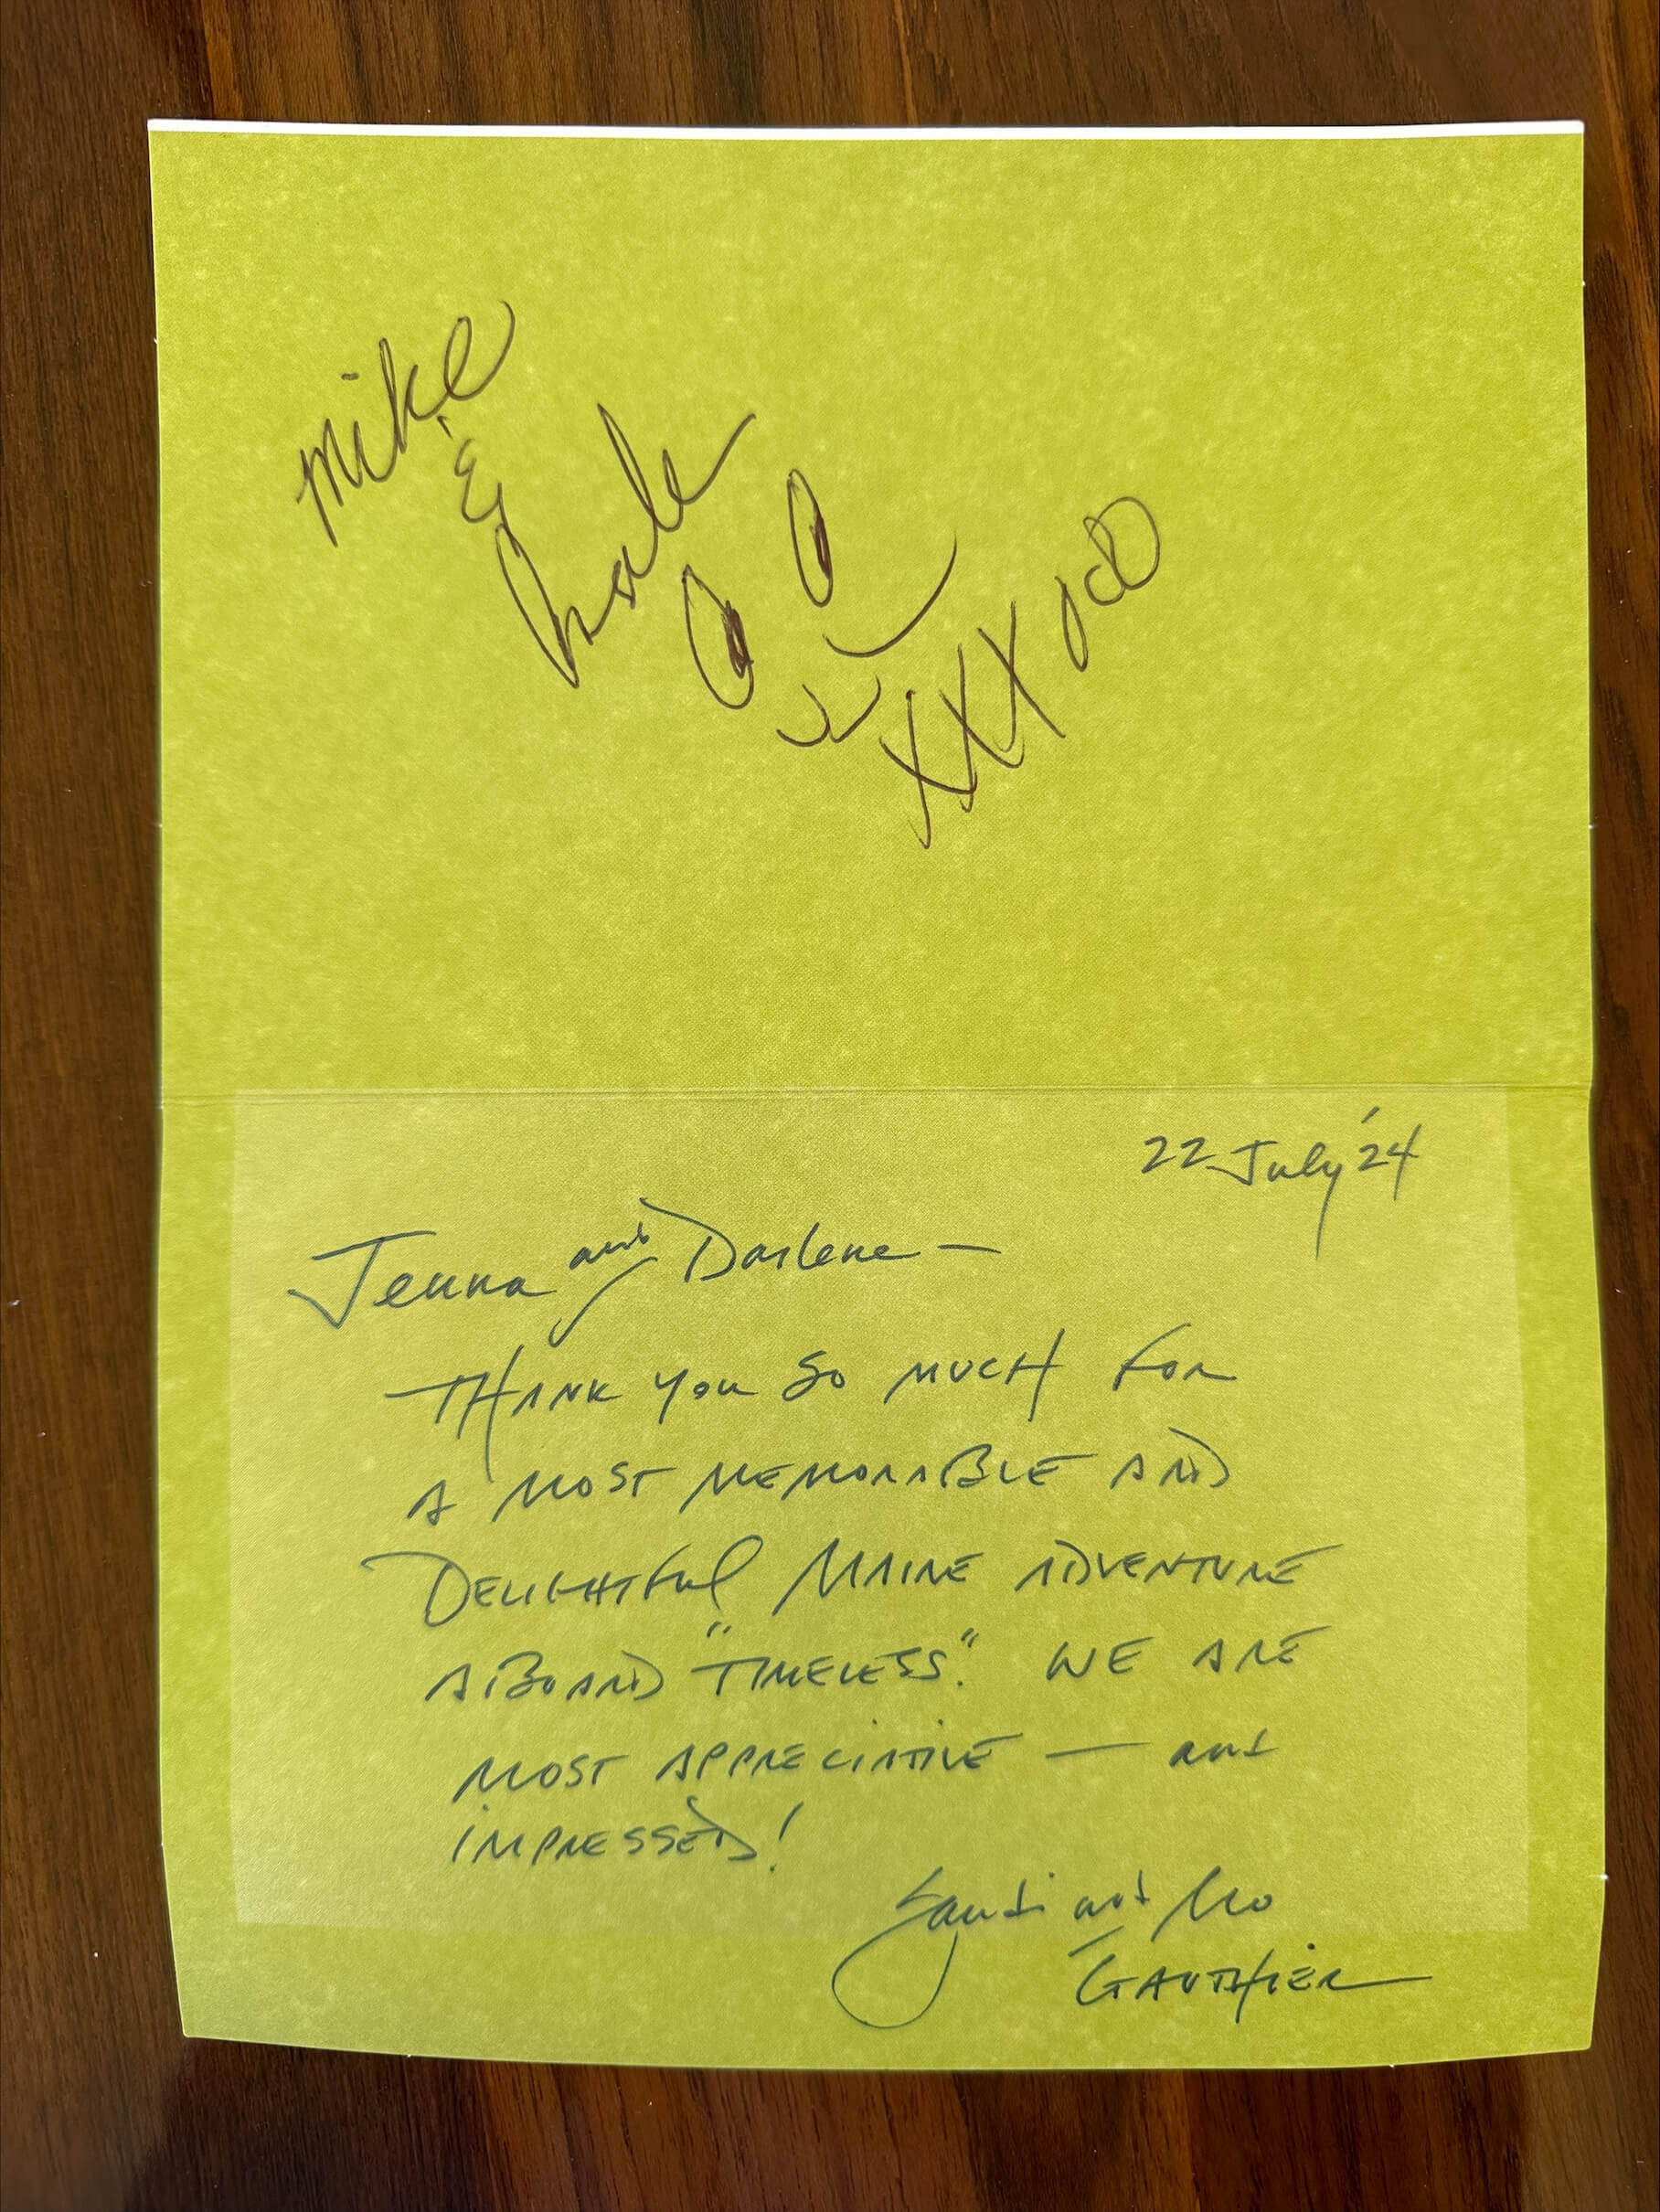 Mike
&
XXX OOO
22 July '24
Jenna and Darlene —
THANK YOU SO MUCH FOR
A MOST MEMORABLE AND
DELIGHTFUL MAINE ADVENTURE
ABOARD "TIMELESS." WE ARE
MOST APPRECIATIVE — and
IMPRESSED!
Sandi and Mo
GAUTHIER